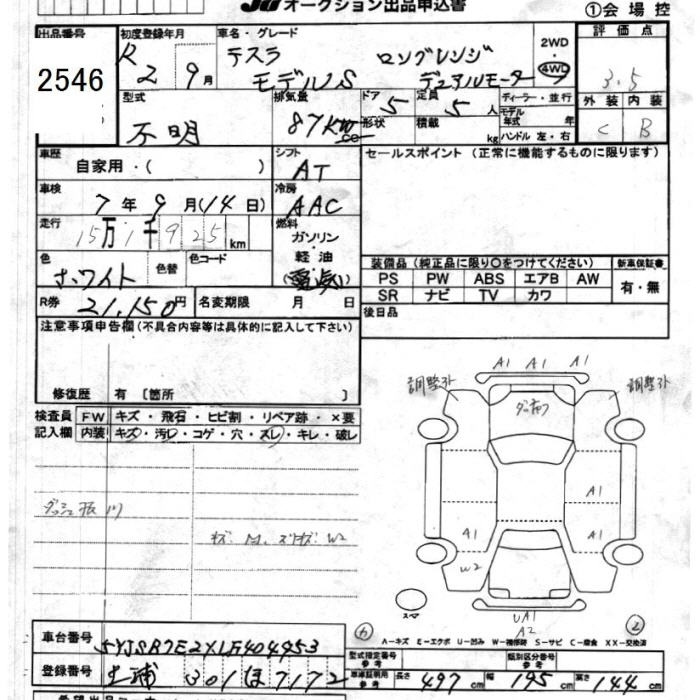 JU オークション出品申込書
①会場控
出品番号 2546
初度登録年月 R 2 9月
車名・グレード テスラ ロングレンジ
モデルS デュアルモーター
2WD
4WD
評価点 3.5
外装 内装
C B
型式 不明
排気量 87KW cc
ドア 5 形状
定員 5人 積載 kg
ディーラー・並行
モデル年式 年
ハンドル 左・右
車歴 自家用・( )
シフト AT
セールスポイント (正常に機能するものに限ります)
車検 7年9月(14日)
冷房 AAC
走行 15万1千925km
燃料 ガソリン・軽油 (電気)
色 ホワイト 色替 色コード
R券 21,150円 名変期限 月 日
装備品 (純正品に限り○をつけてください) 新車保証書
PS PW ABS エアB AW 有・無
SR ナビ TV カワ
後日品
注意事項申告欄 (不具合内容等は具体的に記入して下さい)
修復歴 有 [箇所 ]
検査員 FW キズ・飛石・ヒビ割・リペア跡・×要
記入欄 内装 キズ・汚レ・コゲ・穴・スレ・キレ・破レ
A1 A1 A1
調整引 調整引
A1
A1 A1
W2
スマ
UA1
A2
A-キズ E-エクボ U-凹み W-補修跡 S-サビ C-腐食 XX-交換済
車台番号 5YJSB7E2XLF404953
登録番号 土浦 301 ほ 7172
型式指定番号 参考 類別区分番号 参考
車庫証明用 参考 長さ 497 幅 195 高さ 144 cm